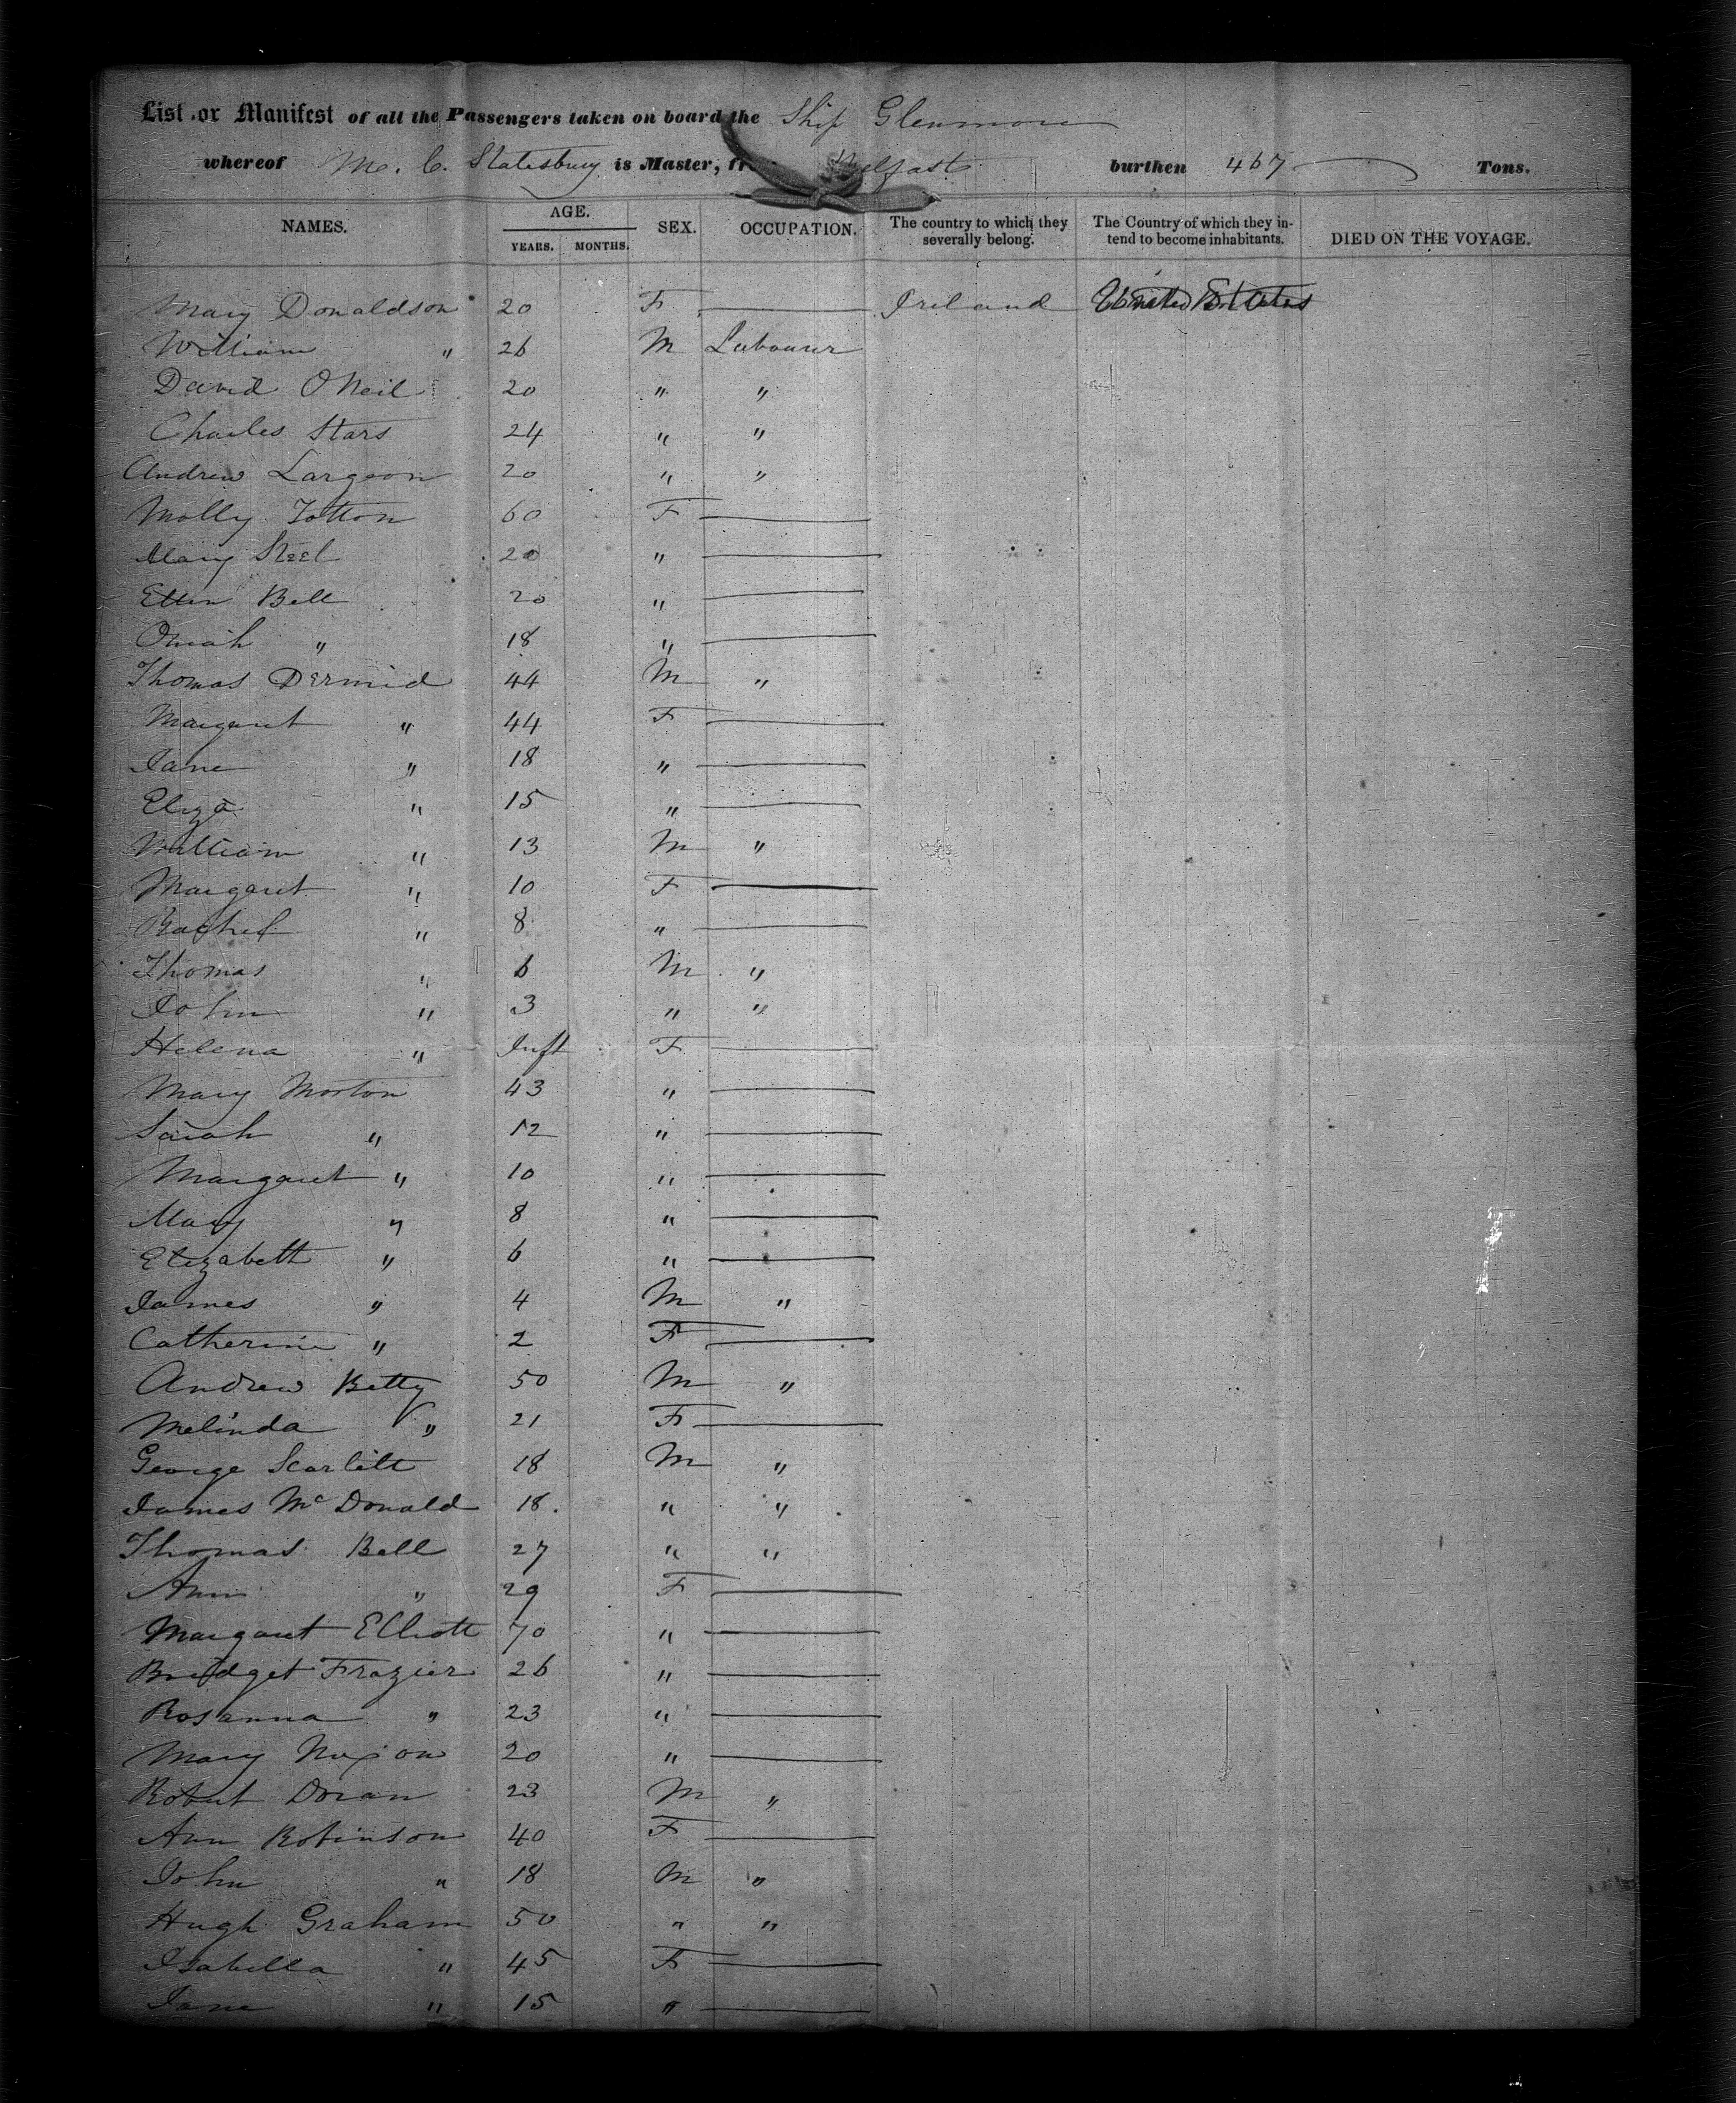 List or Manifest of all the Passengers taken on board the Ship Glenmore
whereof M. C. Statesbury is Master, fr Belfast burthen 467 Tons.
NAMES. AGE. YEARS. MONTHS. SEX. OCCUPATION. The country to which they severally belong. The Country of which they intend to become inhabitants. DIED ON THE VOYAGE.
Mary Donaldson 20 F — Ireland United States
William " 26 M Labourer
David O Neil 20 " "
Charles Stars 24 " "
Andrew Largeon 20 " "
Molly Totton 60 F —
Mary Steel 20 " —
Ellen Bell 20 " —
Omah " 18 " —
Thomas Dermid 44 M "
Margaret " 44 F —
Jane " 18 " —
Eliza " 15 " —
William " 13 M "
Margaret " 10 F —
Rachel " 8 " —
Thomas " 6 M "
John " 3 " "
Helena " Inft F —
Mary Morton 43 " —
Sarah " 12 " —
Margaret " 10 " —
Mary " 8 " —
Elizabeth " 6 " —
James " 4 M "
Catherine " 2 F —
Andrew Betty 50 M "
Melinda " 21 F —
George Scarlett 18 M "
James McDonald 18. " "
Thomas Bell 27 " "
Ann " 29 F —
Margaret Elliott 70 " —
Bridget Frazier 26 " —
Rosanna " 23 " —
Mary Nixon 20 " —
Robert Doran 23 M "
Ann Robinson 40 F —
John " 18 M "
Hugh Graham 50 " "
Isabella " 45 F —
Jane " 15 " —